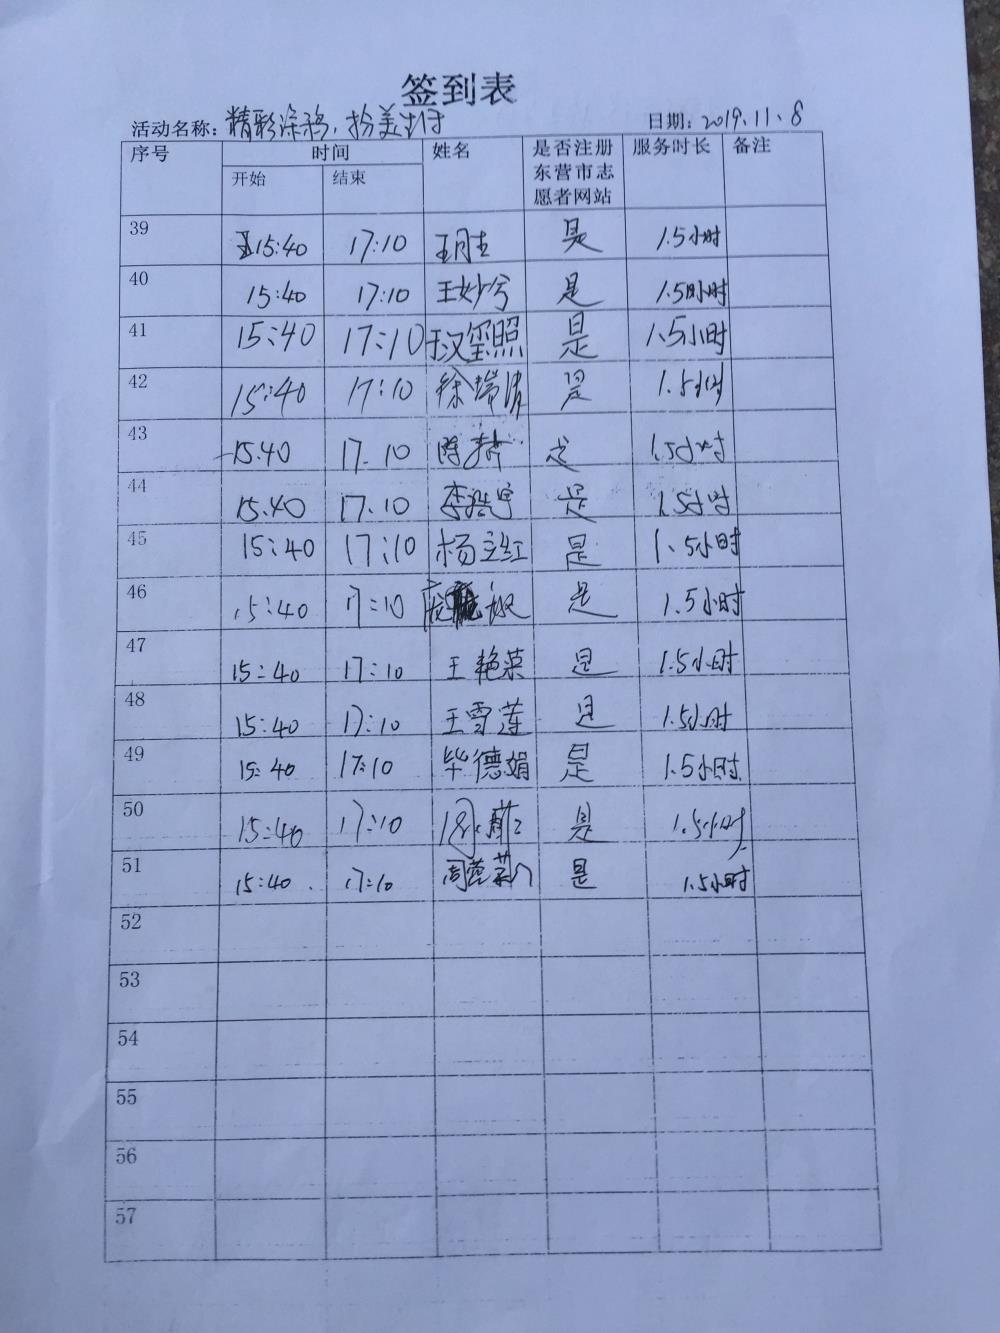 签到表
活动名称：精彩涂鸦，扮美 日期：2019.11.8
序号 时间 姓名 是否注册东营市志愿者网站 服务时长 备注
开始 结束
39 15:40 17:10 是 1.5小时
40 15:40 17:10 王妙兮 是 1.5小时
41 15:40 17:10 王汉玺照 是 1.5小时
42 15:40 17:10 徐 是 1.5小时
43 15.40 17.10 陈 是 1.5小时
44 15.40 17.10 李浩宇 是 1.5小时
45 15:40 17:10 杨立红 是 1.5小时
46 15:40 17:10 是 1.5小时
47 15:40 17:10 王艳荣 是 1.5小时
48 15:40 17:10 王雪莲 是 1.5小时
49 15:40 17:10 毕德娟 是 1.5小时
50 15:40 17:10 是 1.5小时
51 15:40 17:10 周 是 1.5小时
52
53
54
55
56
57